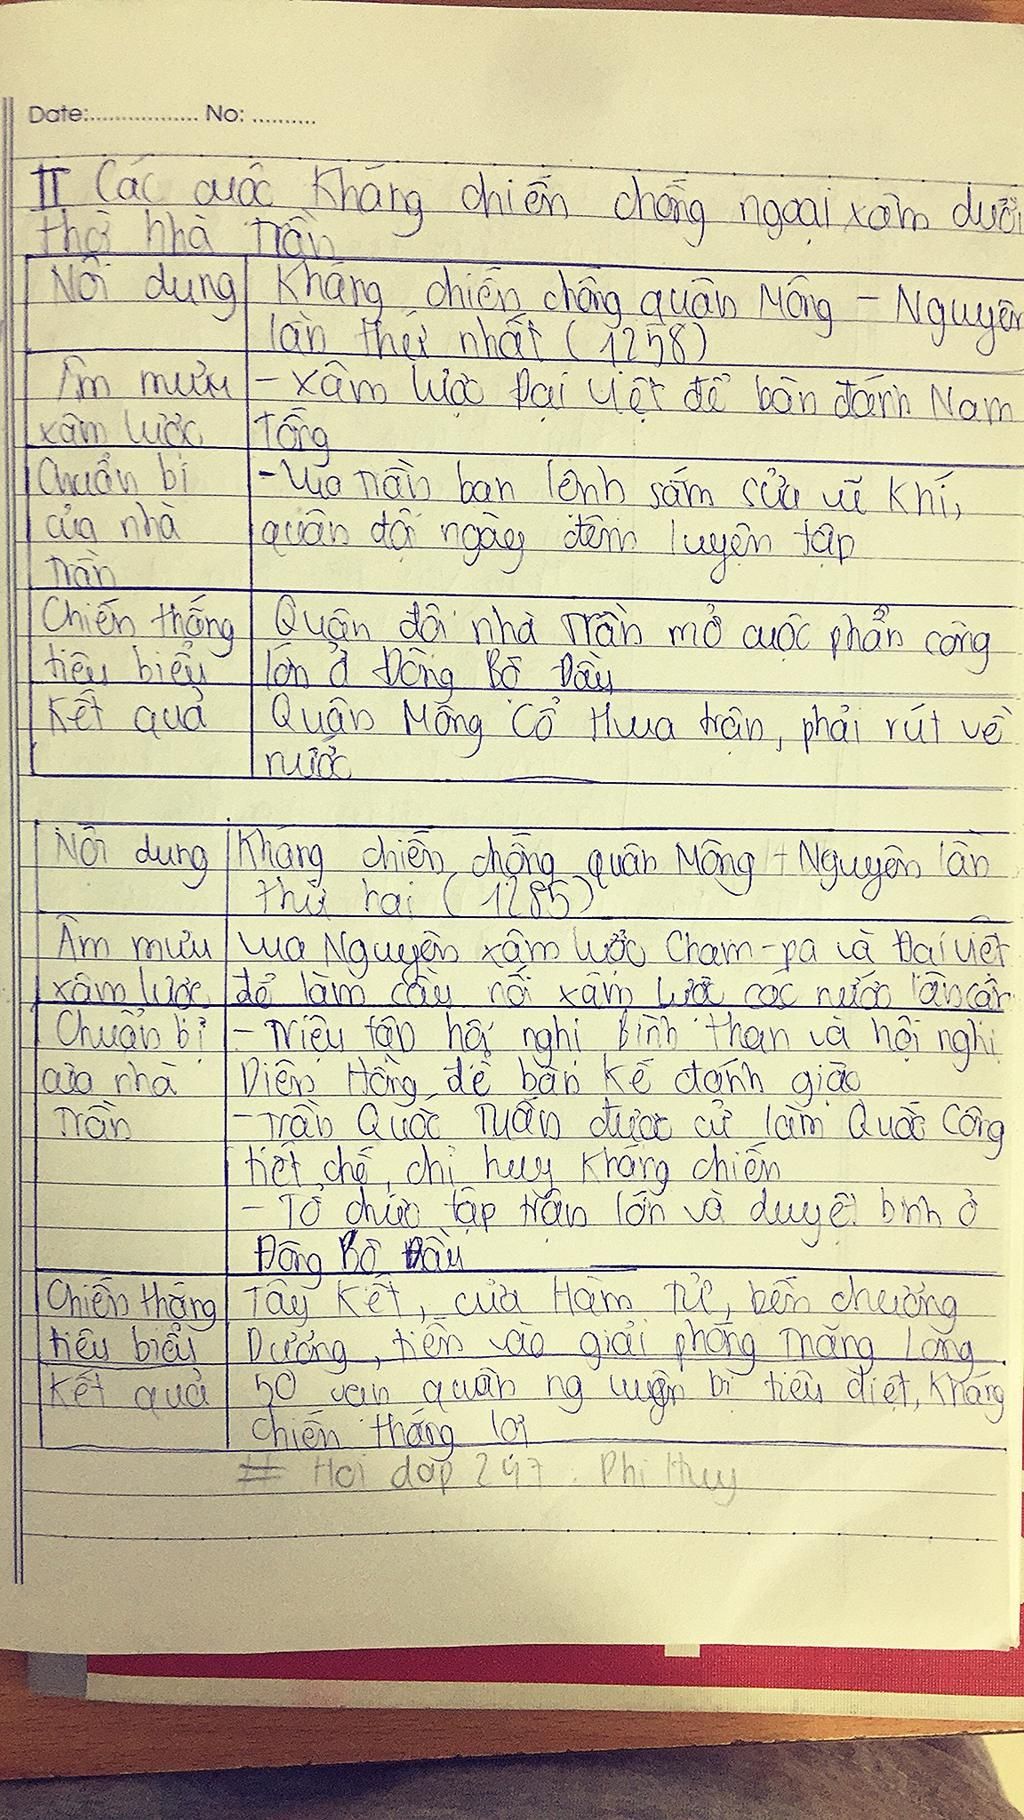 Date:.................. No: ..........
II Các cuộc Kháng chiến chống ngoại xâm dưới
thời nhà Trần
Nội dung Kháng chiến chống quân Mông - Nguyên
lần thứ nhất (1258)
Âm mưu - Xâm lược Đại Việt để bàn đánh Nam
xâm lược Tống
Chuẩn bị - Vua Trần ban lệnh sắm sửa vũ khí,
của nhà quân đội ngày đêm luyện tập
Trần
Chiến thắng Quân đội nhà Trần mở cuộc phản công
tiêu biểu lớn ở Đông Bộ Đầu
Kết quả Quân Mông Cổ thua trận, phải rút về
nước
Nội dung Kháng chiến chống quân Mông - Nguyên lần
thứ hai (1285)
Âm mưu vua Nguyên xâm lược Cham-pa và Đại Việt
xâm lược để làm cầu nối xâm lược các nước lân cận
Chuẩn bị - Triệu tập hội nghị Bình Than và hội nghị
của nhà Diên Hồng để bàn kế đánh giặc
Trần - Trần Quốc Tuấn được cử làm Quốc Công
tiết chế, chỉ huy kháng chiến
- Tổ chức tập trận lớn và duyệt binh ở
Đông Bộ Đầu
Chiến thắng Tây Kết, cửa Hàm Tử, bến chương
tiêu biểu Dương, tiến vào giải phóng Thăng Long
Kết quả 50 vạn quân nguyên bị tiêu diệt, Kháng
chiến thắng lợi
# Hoi dap 247 : Phi Huy